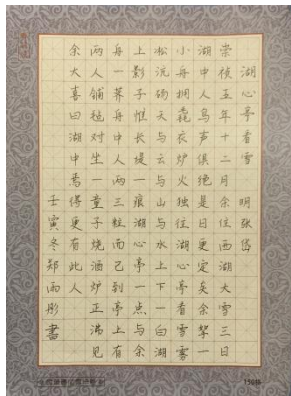 湖心亭看雪 明 张岱
崇祯五年十二月余住西湖大雪三日
湖中人鸟声俱绝是日更定矣余挐一
小舟拥毳衣炉火独往湖心亭看雪雾
凇沆砀天与云与山与水上下一白湖
上影子惟长堤一痕湖心亭一点与余
舟一芥舟中人两三粒而已到亭上有
两人铺毡对坐一童子烧酒炉正沸见
余大喜曰湖中焉得更有此人
壬寅冬郑雨彤書
150格